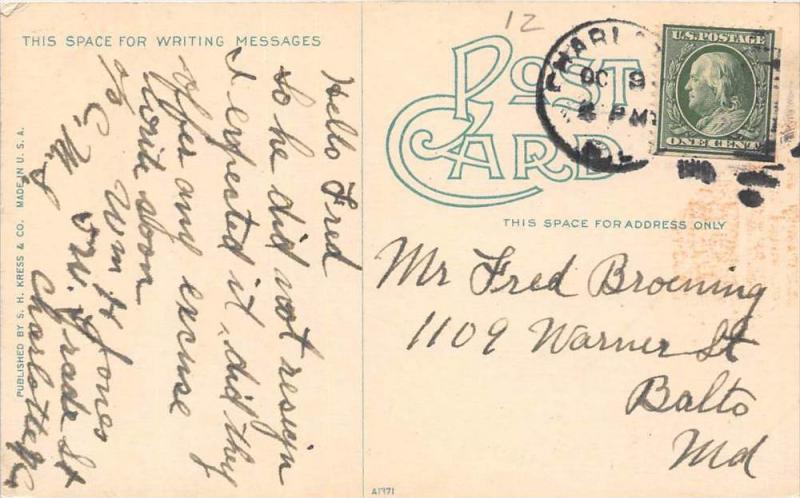 THIS SPACE FOR WRITING MESSAGES
Hello Fred
So he did not resign
I expected it, did they
offer any excuse
write soon
Wm H Jones
W. Trade St
Charlotte
PUBLISHED BY S. H. KRESS & CO. MADE IN U. S. A.
12
POST
CARD
OC 9
PM
U.S. POSTAGE
ONE CENT
THIS SPACE FOR ADDRESS ONLY
Mr Fred Broening
1109 Warner St
Balto
Md
A1971